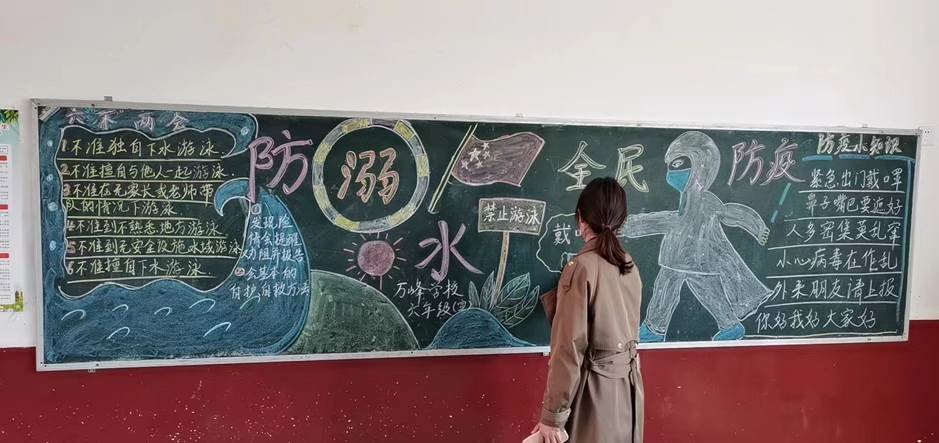 六不两会
1不准独自下水游泳.
2不准擅自与他人一起游泳.
3不准在无家长或老师带
队的情况下游泳.
4不准到不熟悉地方游泳
5不准到无安全设施水域游泳
6不准擅自下水游泳.
①发现险
情会提醒
劝阻并报告
②会基本的
自护自救方法
防溺水
禁止游泳
万峰学校
六年级(四)
全民防疫
戴口
防疫小知识
紧急出门戴口罩
鼻子嘴巴要遮好
人多密集莫乱窜
小心病毒在作乱
外来朋友请上报
你好我好大家好